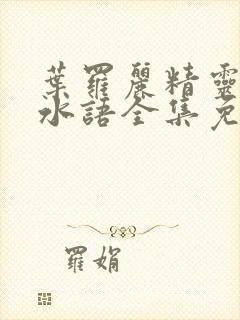 葉羅麗精靈
水語全集免
羅娟